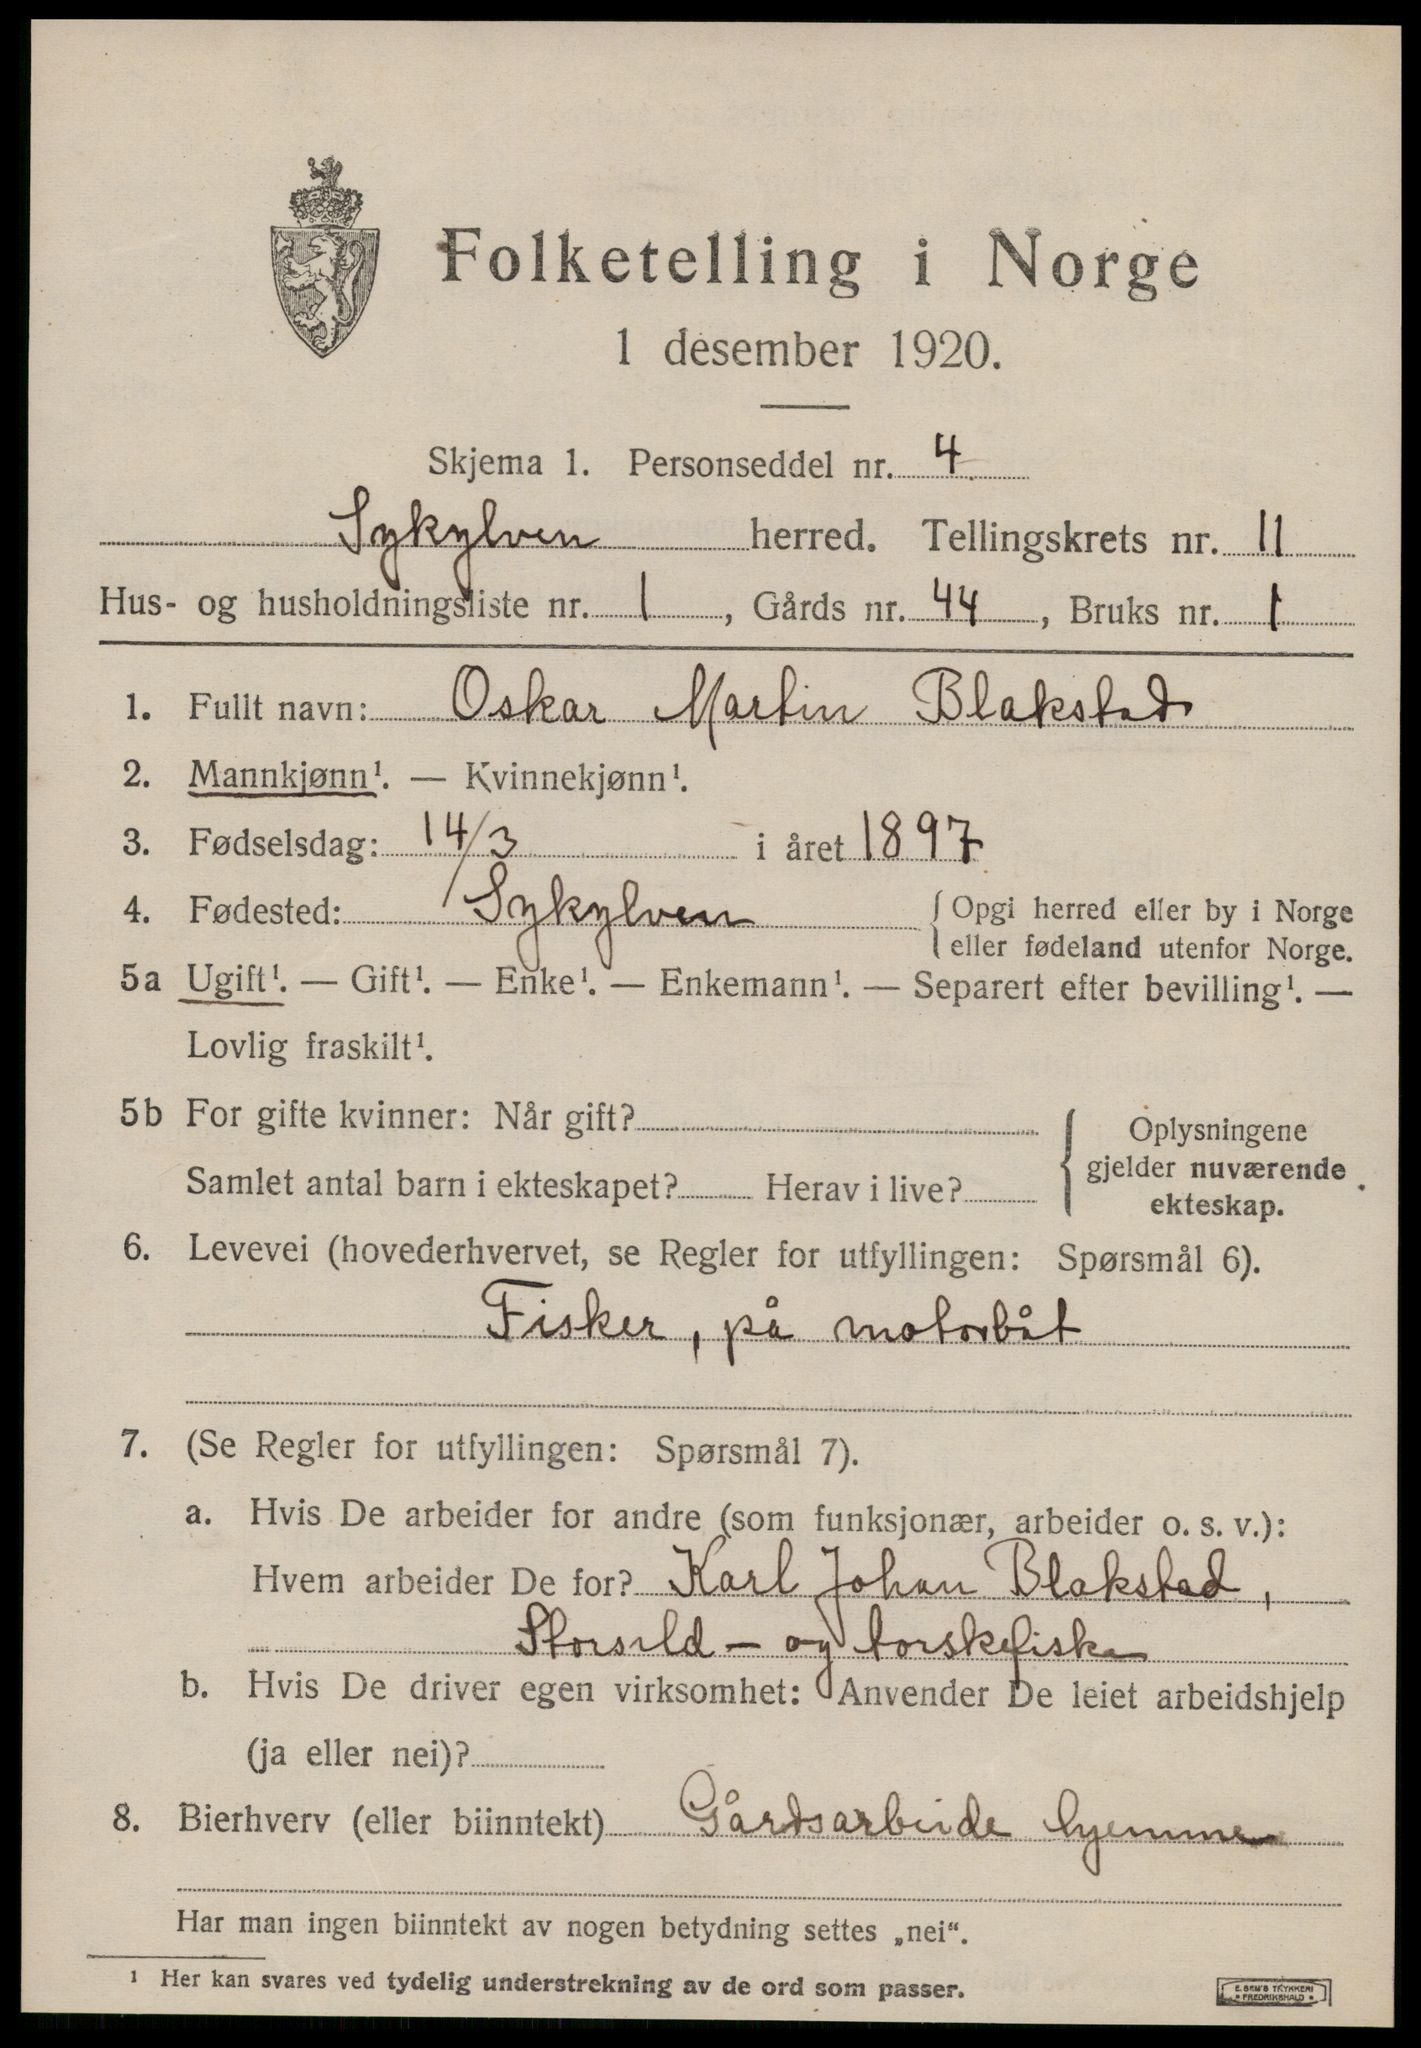 Folketelling i Norge
1 desember 1920.
Skjema 1. Personseddel nr. 4
Sykylven herred. Tellingskrets nr. 11
Hus- og husholdningsliste nr. 1, Gårds nr. 44, Bruks nr. 1
1. Fullt navn: Oskar Martin Blakstad
2. Mannkjønn¹. — Kvinnekjønn¹.
3. Fødselsdag: 14/3 i året 1897
4. Fødested: Sykylven { Opgi herred eller by i Norge
eller fødeland utenfor Norge.
5a Ugift¹. — Gift¹. — Enke¹. — Enkemann¹. — Separert efter bevilling¹. —
Lovlig fraskilt¹.
5b For gifte kvinner: Når gift?
Samlet antal barn i ekteskapet? Herav i live?
{ Oplysningene
gjelder nuværende
ekteskap.
6. Levevei (hovederhvervet, se Regler for utfyllingen: Spørsmål 6).
Fisker, på motorbåt
7. (Se Regler for utfyllingen: Spørsmål 7).
a. Hvis De arbeider for andre (som funksjonær, arbeider o. s. v.):
Hvem arbeider De for? Karl Johan Blakstad,
Storsild - og torskefiske
b. Hvis De driver egen virksomhet: Anvender De leiet arbeidshjelp
(ja eller nei)?
8. Bierhverv (eller biinntekt) Gårdsarbeide hjemme
Har man ingen biinntekt av nogen betydning settes „nei“.
¹ Her kan svares ved tydelig understrekning av de ord som passer.
E. SEM'S TRYKKERI
FREDRIKSHALD